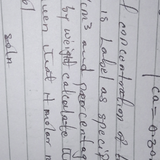 ca = 0.80
concentration of
is label as speci
cm³ and percentag
by weight calculate
that molar m
soln